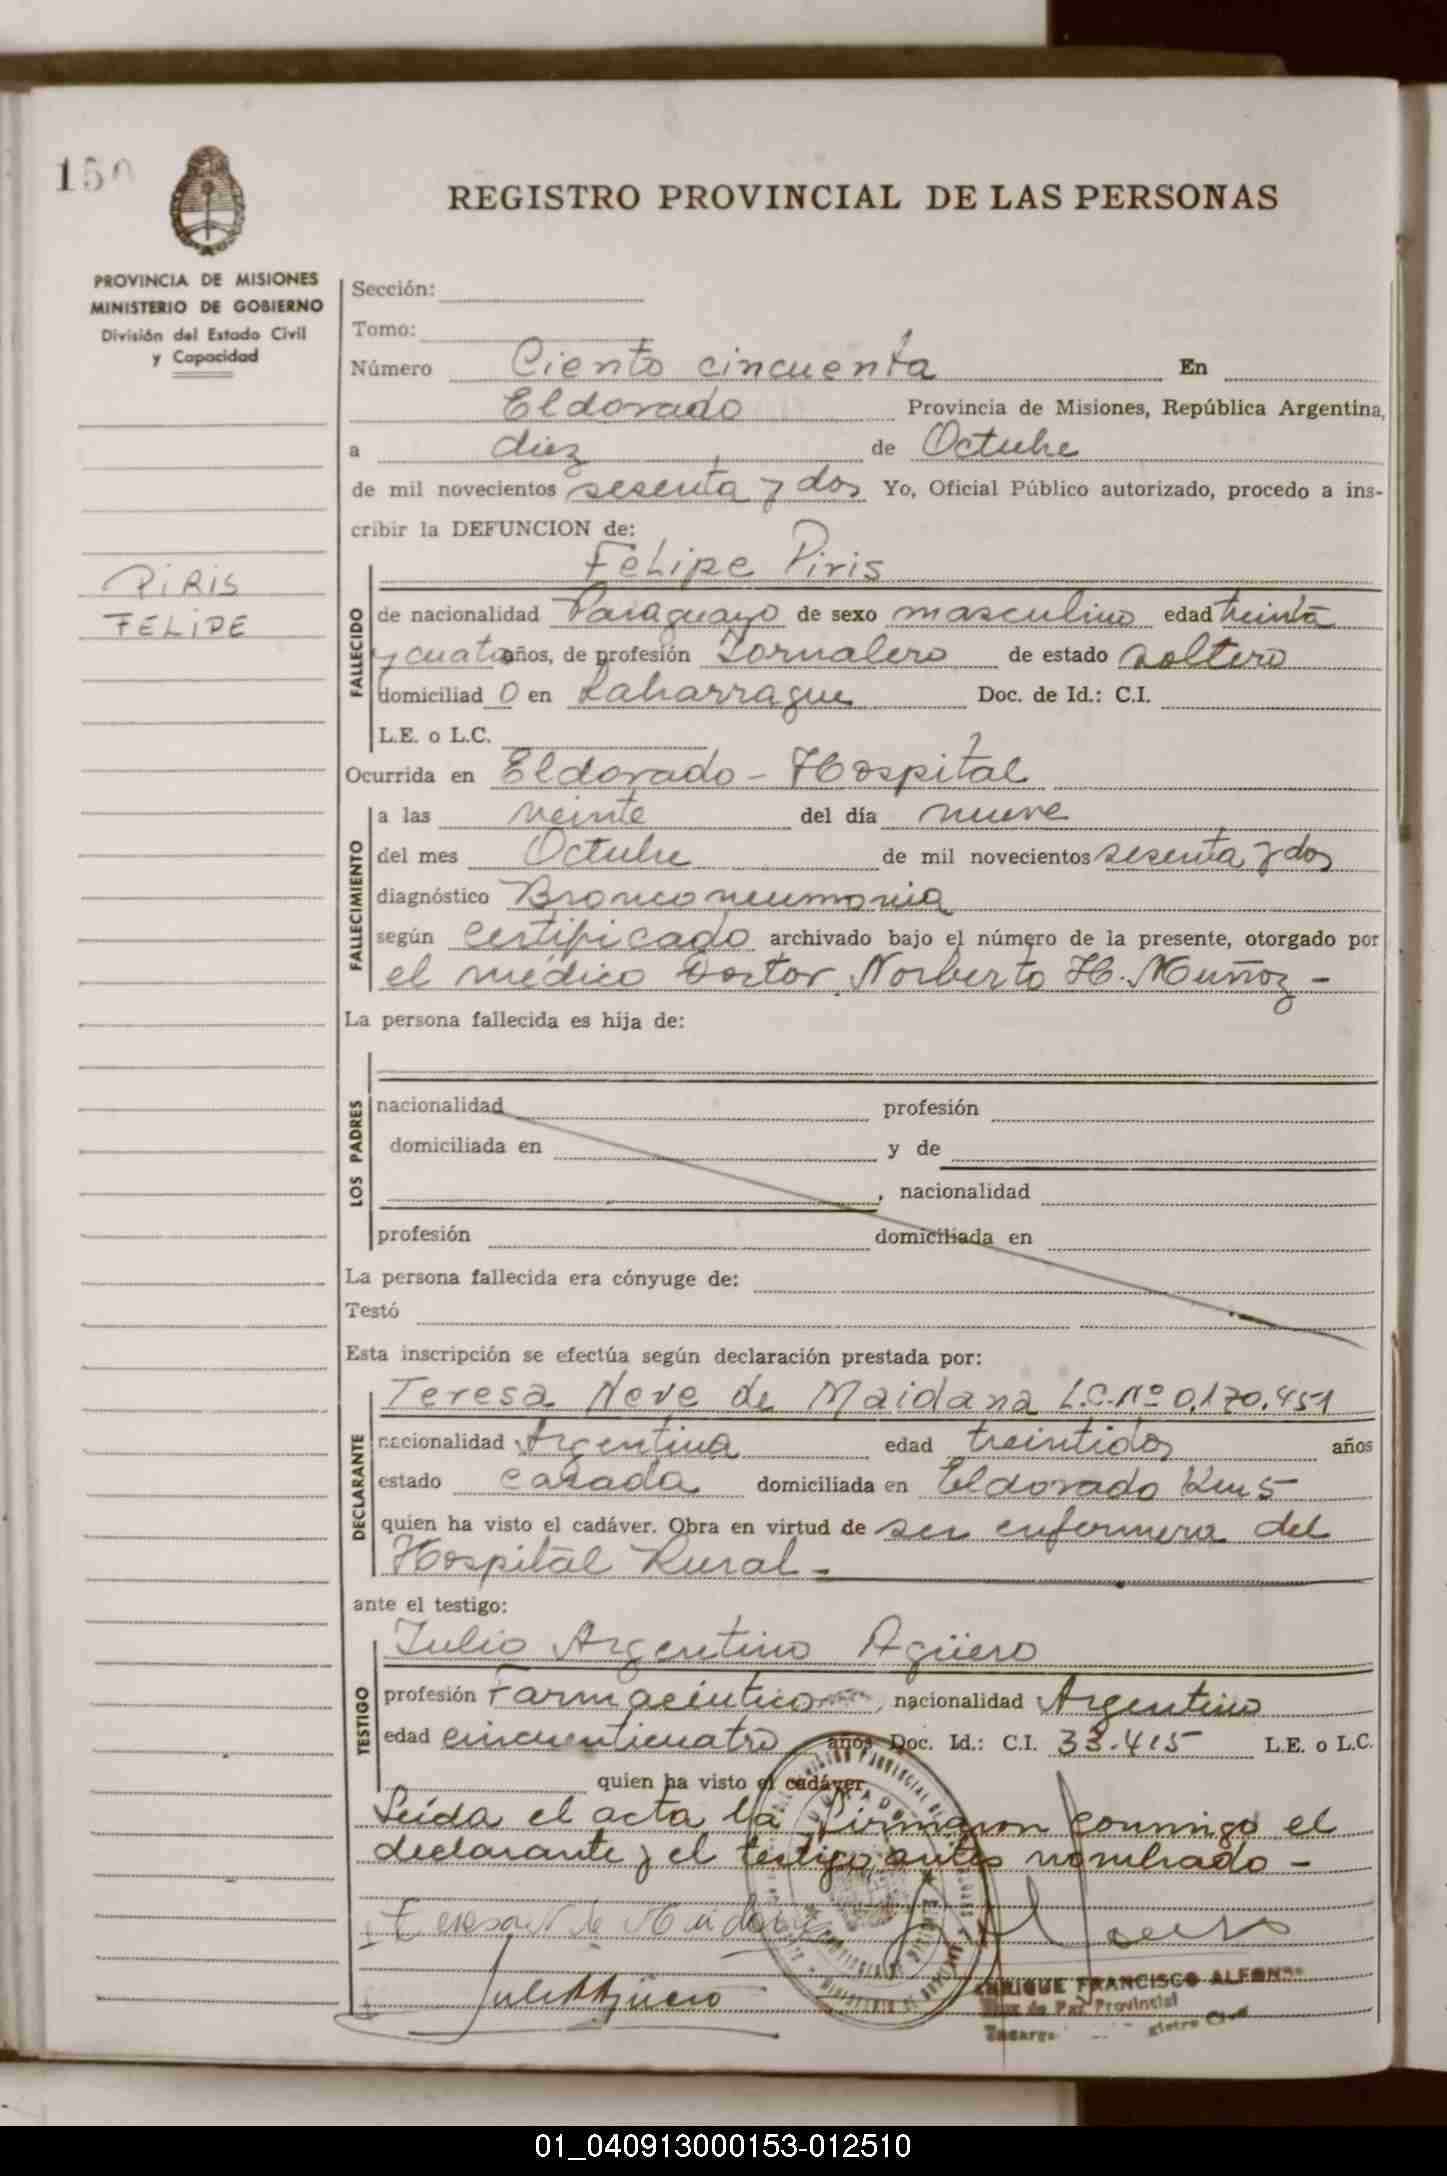 150
REGISTRO PROVINCIAL DE LAS PERSONAS
PROVINCIA DE MISIONES
MINISTERIO DE GOBIERNO
División del Estado Civil
y Capacidad
Sección:
Tomo:
Número Ciento cincuenta En
Eldorado Provincia de Misiones, República Argentina,
a diez de Octubre
de mil novecientos sesenta y dos Yo, Oficial Público autorizado, procedo a ins-
cribir la DEFUNCION de:
PIRIS
FELIPE
FALLECIDO
Felipe Piris
de nacionalidad Paraguayo de sexo masculino edad treinta
y cuatro años, de profesión Jornalero de estado soltero
domiciliad o en Laharrague Doc. de Id.: C.I.
L.E. o L.C.
Ocurrida en Eldorado - Hospital
FALLECIMIENTO
a las veinte del día nueve
del mes Octubre de mil novecientos sesenta y dos
diagnóstico Bronconeumonia
según certificado archivado bajo el número de la presente, otorgado por
el médico Doctor Norberto H. Muñoz -
La persona fallecida es hija de:
LOS PADRES
nacionalidad profesión
domiciliada en y de
, nacionalidad
profesión domiciliada en
La persona fallecida era cónyuge de:
Testó
Esta inscripción se efectúa según declaración prestada por:
DECLARANTE
Teresa Neve de Maidana L.C. Nº 0.170.451
nacionalidad Argentina edad treintidos años
estado casada domiciliada en Eldorado Km 5
quien ha visto el cadáver. Obra en virtud de ser enfermera del
Hospital Rural -
ante el testigo:
TESTIGO
Julio Argentino Agüero
profesión Farmacéutico, nacionalidad Argentino
edad cincuenticuatro años Doc. Id.: C.I. 33.415 L.E. o L.C.
quien ha visto el cadáver
Leida el acta la firmaron conmigo el
declarante y el testigo antes nombrado -
Teresa N de Maidana
Julio A Agüero
ENRIQUE FRANCISCO ALFONSO
Juez de Paz Provincial
01_040913000153-012510